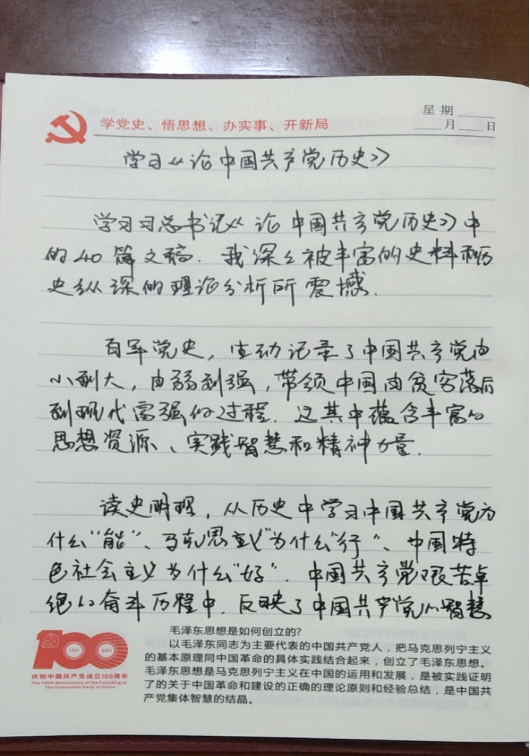 学党史、悟思想、办实事、开新局
星期
月 日
学习《论中国共产党历史》
学习习总书记《论中国共产党历史》中
的40篇文稿，我深深被丰富的史料和历
史纵深的理论分析所震撼．
百年党史，生动记录了中国共产党由
小到大，由弱到强，带领中国由贫穷落后
到现代富强的过程．这其中蕴含丰富的
思想资源、实践智慧和精神力量．
读史明理，从历史中学习中国共产党为
什么“能”、马克思主义“为什么“行”、中国特
色社会主义为什么“好”．中国共产党艰苦卓
绝的奋斗历程中，反映了中国共产党人的智慧
100
1921 2021
庆祝中国共产党成立100周年
The 100th Anniversary of the Founding of
The Communist Party of China
毛泽东思想是如何创立的?
以毛泽东同志为主要代表的中国共产党人，把马克思列宁主义
的基本原理同中国革命的具体实践结合起来，创立了毛泽东思想。
毛泽东思想是马克思列宁主义在中国的运用和发展，是被实践证明
了的关于中国革命和建设的正确的理论原则和经验总结，是中国共
产党集体智慧的结晶。